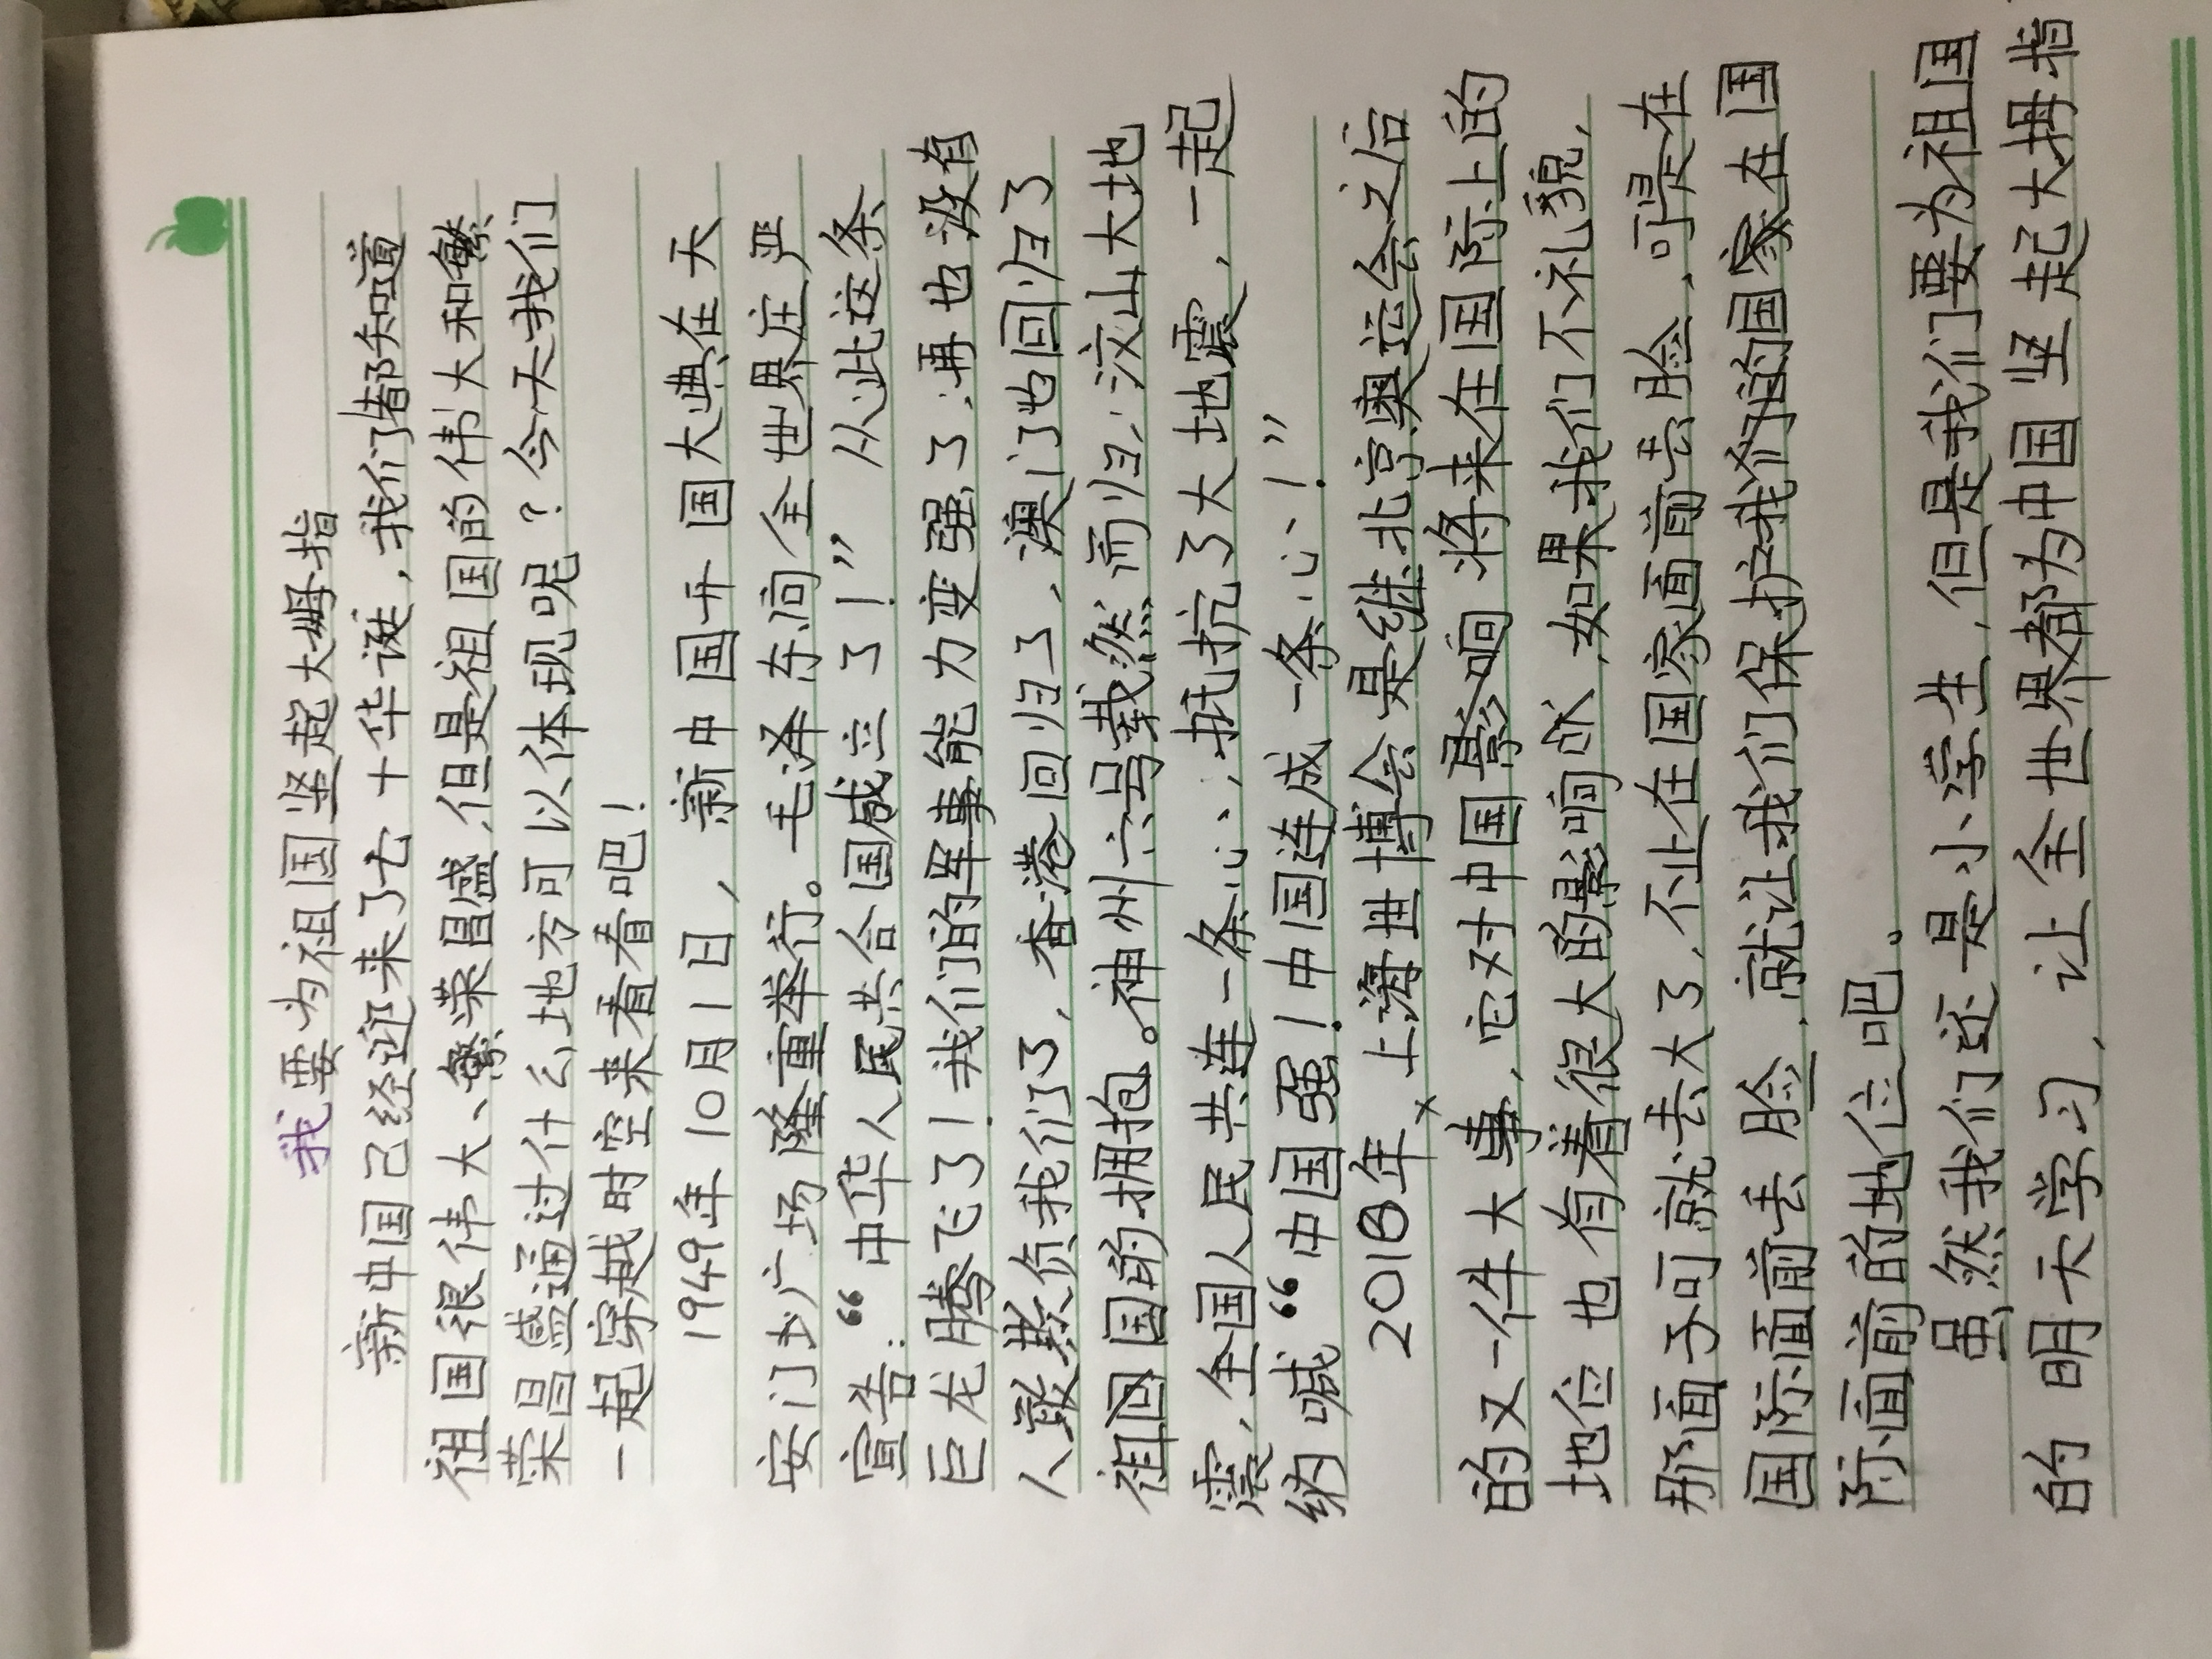 我要为祖国竖起大姆指
新中国己经迎来了七十华诞，我们都知道
祖国很伟大、繁荣昌盛，但是祖国的伟大和繁
荣昌盛通过什么地方可以体现呢？今天我们
一起穿越时空来看看吧！
1949年10月1日，新中国开国大典在天
安门广场隆重举行。毛泽东向全世界庄严
宣告：“中华人民共合国成立了！”从此这条
巨龙腾飞了！我们的军事能力变强了；再也没有
人敢欺负我们了，香港回归了，澳门也回归了
祖国的拥抱。神州六号载然而归；汶山大地
震，全国人民共连一条心，抵抗了大地震，一起
呐喊“中国强！中国连成一条心！”
2018年，上海世博会是继北京奥运会之后
的又一件大事，它对中国影响将来在国际上的
地位也有着很大的影响欤，如果我们不礼貌，
那面子可就丢大了，不止在国家面前丢脸，可是在
国际面前丢脸，就让我们保护我们的国家在国
际面前的地位吧。
虽然我们还是小学生，但是我们要为祖国
的明天学习，让全世界都为中国坚起大拇指